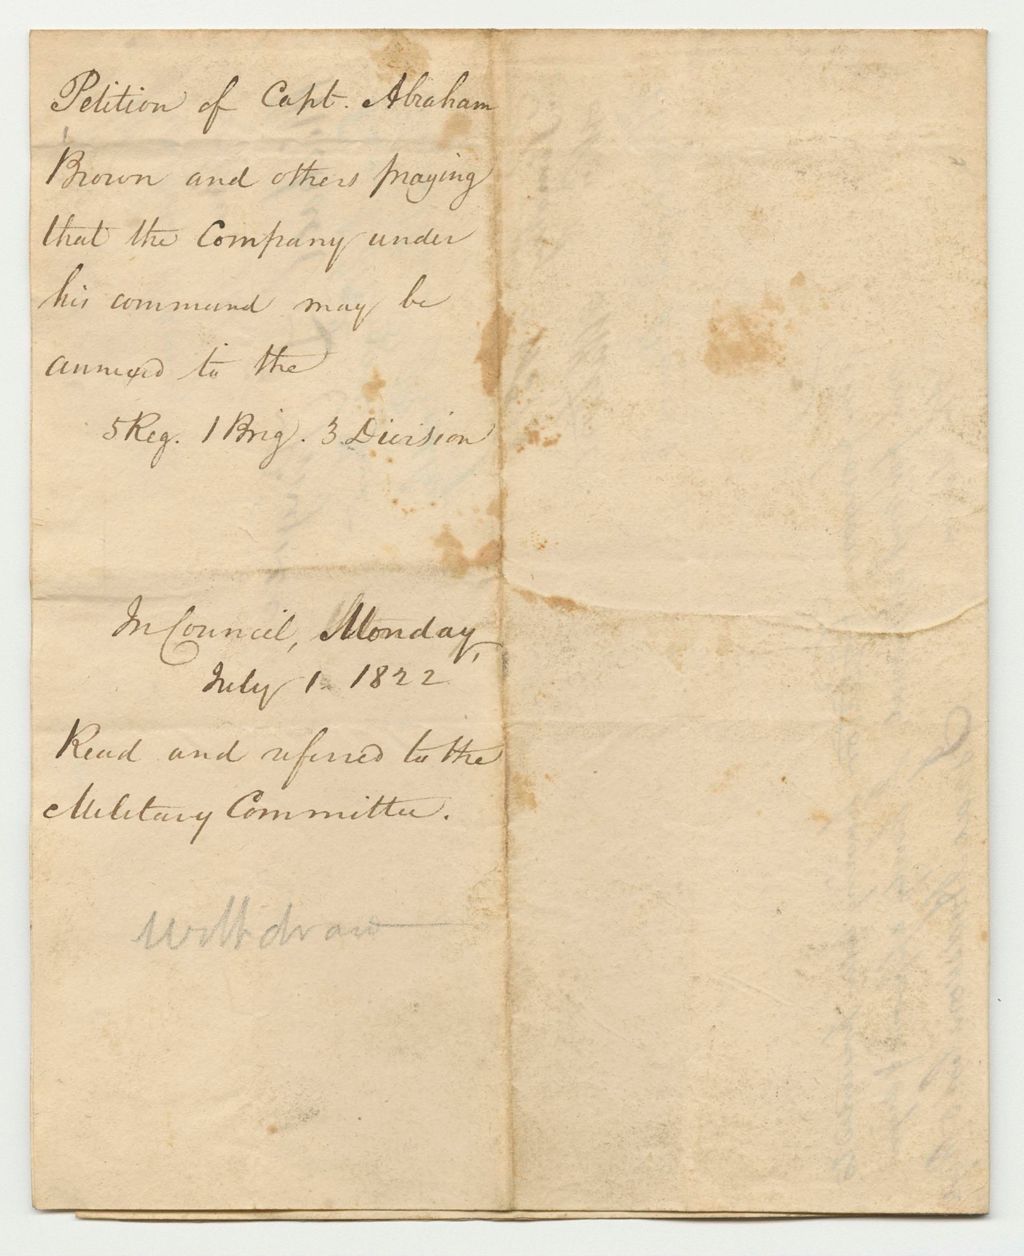 Petition of Capt. Abraham
Brown and others praying
that the Company under
his command may be
annexed to the
5 Reg. 1 Brig. 3 Division
In Council, Monday,
July 1. 1822
Read and referred to the
Military Committee.
Withdraw